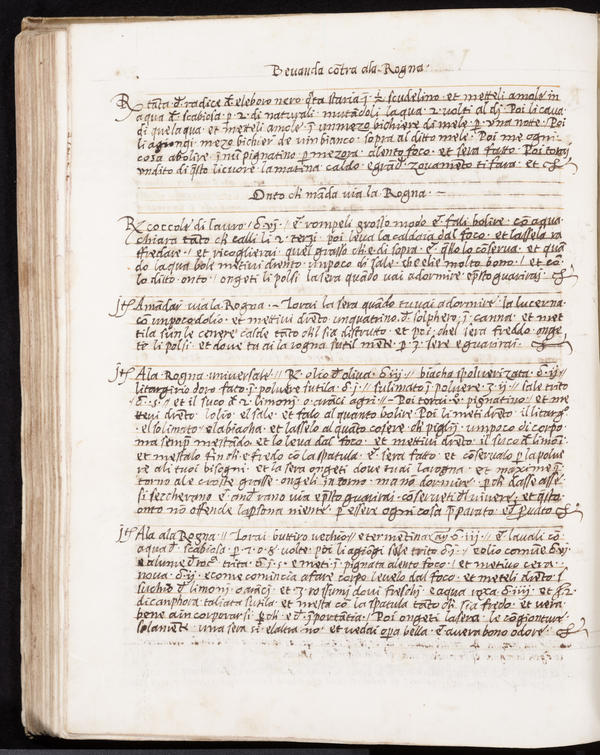 Beuanda cõtra ala Rogna.
R tãta đ radice đ eleboro nero q̃ta staria ĩ ½ scudelino et metteli amole in
aqua đ scabiosa p 2 di naturali mutãdoli laqua 2 uolti al dj Poi li caua
di quelaqua et metteli amole ĩ un mezo bichiere di mele p una note Poi
li agiongi mezo bichier de uin bianco sopra al ditto mele Poi me ogni
cosa abolire ĩ nũ pignatino p mezora alento foco et sera fatto Poi torai
undito di q̃sto licuore la matina caldo e grãđ zouamẽto ti fara et c̃
Onto ch mãda uia la Rogna
R coccole di lauro e rompeli grosso modo e fali bolire cõ aqua
chiara tãto ch calli li 2 terzi poi leua la caldaia dal foco et lassela ra
ffredare et ricoglierai quel grasso ch e di sopra e q̃sto lo cõserua et quã
do laqua boli mettiui drento un poco di sale che lie molto bono et cõ
lo ditto onto ongeti li polsi la sera quãdo uai adormire e p̃sto guarirai c̃
Itẽ Amãdar uia la Rogna Torai la sera quãdo tu uai adormire la lucerna
cõ un poco dolio et mettiui dreto un quatrino đ solphero ĩ canna et met
tila sun le cenere calde tãto ch l sia distruto et poi chel sera freddo onge
te li polsi et doue tu ai la rogna sutil mete p 3 sere e guarirai c̃
Itẽ Ala Rogna uniuersale R olio đ oliua biacha spoluerizata
litargirio doro fato ĩ poluere sutila sulimato ĩ poluere sale trito
et il suco đ 2 limoni o arãci agri Poi torai pignatino et me
tteui drẽto lolio el sale et falo alquanto bolire Poi li meti dreto il litargo
el solimato e la biacha et lasselo al quãto cosere ch piglij un poco di corpo
ma semp̃ mestado et lo leua dal foco et mettiui dreto il suco đ limoni
et mestalo fin ch e fredo cõ la spatula e sera fatto et cõserualo p la polue
re ali tuoi bisogni et la sera ongeti doue tu ai la rogna et maxime ĩ
torno ale croste grasse ongeli in torno ma nõ dormire p ch dasse asse
si seccherano e andrano uia e p̃sto guarirai cõseruete đ l uiuere et q̃sto
onto nõ offende la p̃sona niente p essere ogni cosa p̃parato et p̃uato c̃
Itẽ Ala ala Rogna Torai butiro uechio e termetina e laualj cõ
aqua đ scabiosa p 7 o 8 uolte poi li agiõgi sale trito e olio comũe
e alume đ rocc tãta et met ĩ pignata alento foco et metiuo cera
noua e come comincia a fare corpo leuelo dal foco et meteli dreto
suchio đ limonj o arãcj et 3 rossumj doui freschi e aqua rosa et
di canphora taliata sutila et mesta cõ la spatula tãto ch sia fredo et uera
bene a incorporarsi p ch e đ ĩportãtia Poi ongeti la sera le cõgionture
solamẽte una sera si e laltra nõ et uedai opa bella e auera bono odore c̃